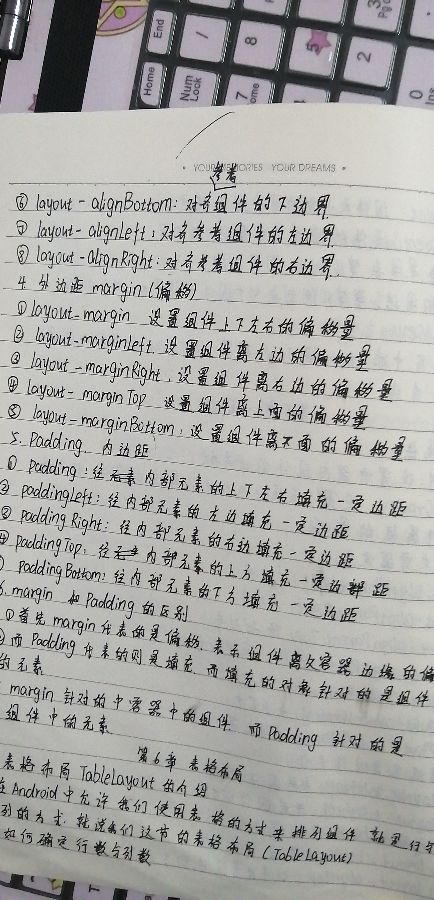 End
Home
/
Num
Lock
8
7
ome
5
2
3
Pg
0
Ins
• YOUR MEMORIES YOUR DREAMS •
参考
⑥ layout-alignBottom: 对齐组件的下边界
⑦ layout-alignLeft: 对齐参考组件的左边界
⑧ layout-alignRight: 对齐参考组件的右边界.
4. 外边距 margin (偏移)
① layout-margin 设置组件上下左右的偏移量
② layout-marginLeft 设置组件离左边的偏移量
③ layout-marginRight. 设置组件离右边的偏移量
④ layout-marginTop 设置组件离上面的偏移量
⑤ layout-marginBottom: 设置组件离下面的偏移量
5. Padding. 内边距
① padding: 往内部元素的上下左右填充一定边距
③ paddingLeft: 往内部元素的左边填充一定边距
② padding Right: 往内部元素的右边填充一定边距
④ paddingTop: 往内部元素的上方填充一定边距
paddingBottom: 往内部元素的下方填充一定边距
6. margin 和 Padding 的区别
① 首先 margin 代表的是偏移. 表示组件离父容器边缘的偏
而 Padding 代表的则是填充 而填充的对象针对的是组件
的元素
margin 针对的中容器中的组件 而 Padding 针对的是
组件中的元素
第6章 表格布局
表格布局 TableLayout 的介绍
在 Android 中允许我们使用表格的方式来排列组件 就是行与
列的方式. 就说我们这节的表格布局 (TableLayout)
如何确定行数与列数